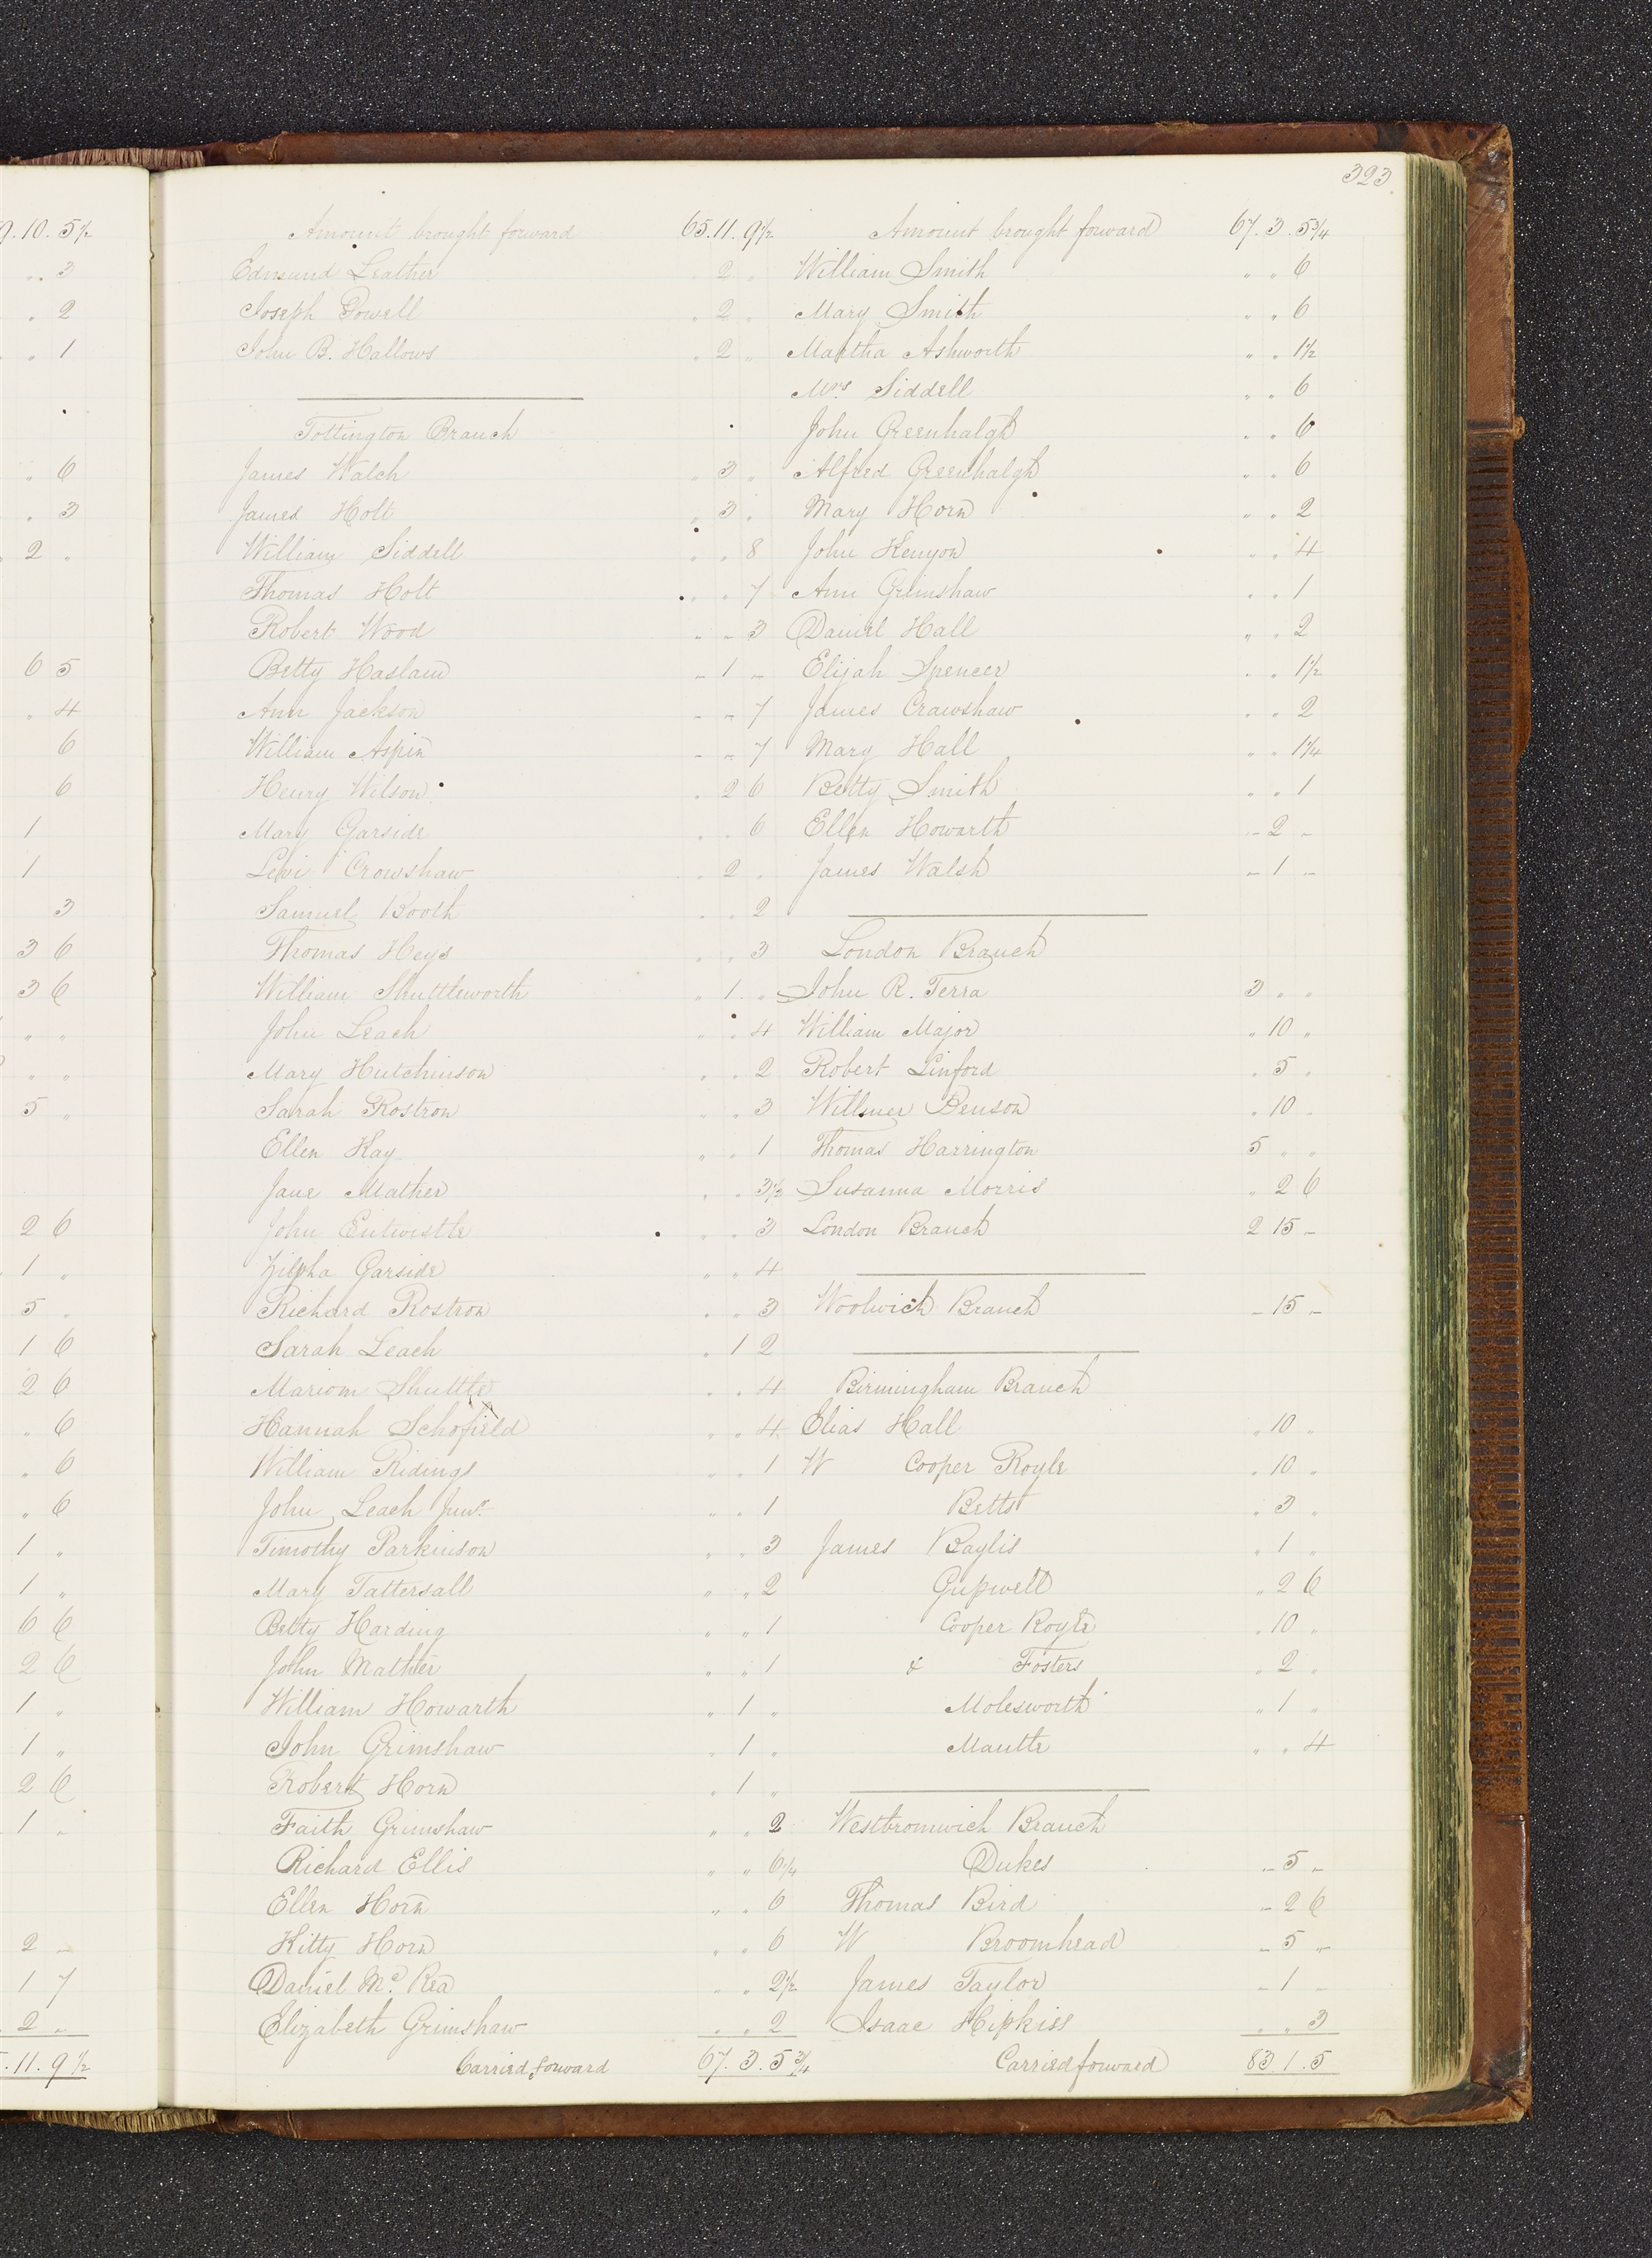 323.
9.10. 5½
.. 3
. 2
. . 1
. 6
. 3
. 2 .
6 5
. 4
6
6
1
1
3
3 6
3 6
" "
" "
5 "
2 6
. 1 "
5 .
1 6
2 6
. 6
. 6
" 6
1 "
1 "
6 6
2 6
1 "
1 "
2 6
1 .
2 -
1 7
2 -
.11. 9½
Amount brought forward 65.11. 9½
Edmund Leather . 2 "
Joseph Powell . 2 "
John B. Hallows . 2 "
Tottington Branch
James Walch . 3 "
James Holt " 3 .
William Siddell . . 8
Thomas Holt . . 7
Robert Wood - - 3
Betty Haslam - 1 -
Ann Jackson - - 7
William Aspin - - 7
Henry Wilson . 2 6
Mary Garside . . 6
Levi Crowshaw . 2 .
Samuel Booth . . 2
Thomas Heys . . 3
William Shuttleworth " 1 . .
John Leach " . 4
Mary Hutchinson . . 2
Sarah Rostron . . 3
Ellen Kay " . 1
Jane Mather . . 3½
John Entwistle . . 3
Zilpha Garside " " 4
Richard Rostron . . 3
Sarah Leach . 1 2
Mariom Shuttle . . 4
Hannah Schofield . . 4
William Ridings " . 1
John Leach Junr. " . 1
Timothy Parkinson " . 3
Mary Tattersall " " 2
Betty Harding " " 1
John Mather " " 1
William Howarth " 1 "
John Grimshaw . 1 "
Robert Horn . 1 "
Faith Grimshaw " . 2
Richard Ellis " " 6¼
Ellen Horn " . 6
Kitty Horn . . 6
Daniel Mc. Rea . . 2½
Elizabeth Grimshaw . . 2
Carried forward 67. 3. 5¾
Amount brought forward 67. 3. 5¾
William Smith " . 6
Mary Smith " . 6
Martha Ashworth " . 1½
Mrs Siddell " . 6
John Greenhalgh " . 6
Alfred Greenhalgh " . 6
Mary Horn " . 2
John Kenyon . . 4
Ann Grimshaw . . 1
Daniel Hall " . 2
Elijah Spencer . . 1½
James Crawshaw . . 2
Mary Hall . . 1¼
Betty Smith . . 1
Ellen Howarth - 2 -
James Walsh - 1 -
London Branch
John R. Terra 3 . .
William Major . 10 "
Robert Linford . 5 .
Willmer Benson . 10 .
Thomas Harrington 5 " "
Susanna Morris " 2 6
London Branch 2 15 -
Woolwich Branch - 15 -
Birmingham Branch
Elias Hall . 10 "
W Cooper Royle . 10 .
Betts . 3 .
James Baylis " 1 "
Gupwell " 2 6
Cooper Royle . 10 .
& Fosters . 2 .
Molesworth " 1 "
Mantle " . 4
Westbromwich Branch
Dukes - 5 -
Thomas Bird - 2 6
W Broomhead - 5 -
James Taylor - 1 -
Isaac Hipkiss . . 3
Carried forward 83 1. 5